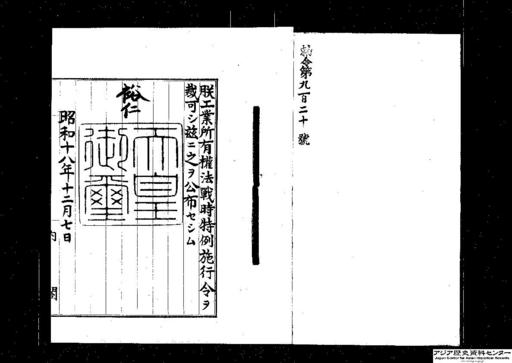 勅令第九百二十號
朕工業所有權法戰時特例施行令ヲ
裁可シ茲ニ之ヲ公布セシム
裕仁
天皇御璽
昭和十八年十二月七日
内閣
アジア歴史資料センター
Japan Center for Asian Historical Records